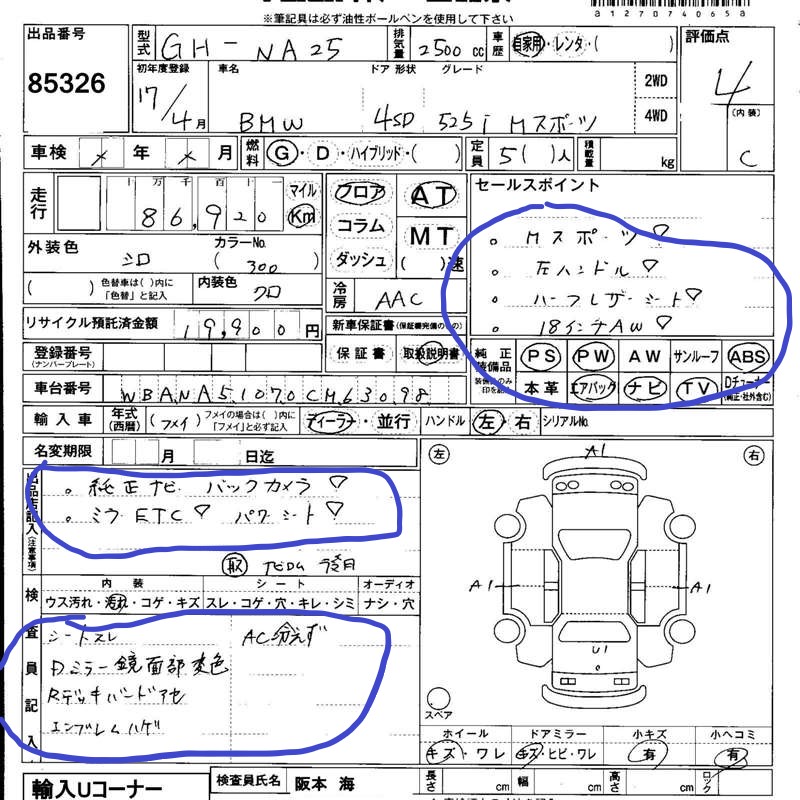 ※筆記具は必ず油性ボールペンを使用して下さい
a12707406 5a
出品番号 85326
型式 GH- NA25 排気量 2500 cc 車歴 自家用・レンタ・( ) 評価点 4
初年度登録 17/4月 車名 BMW ドア 形状 4SD グレード 525i Mスポーツ 2WD 4WD (内装) C
車検 × 年 × 月 燃料 G・D・ハイブリッド・( ) 定員 5( )人 積載量 kg
走行 十万千百 86,920 マイル Km フロア コラム ダッシュ AT MT ( )速
セールスポイント
。Mスポーツ♡
。左ハンドル♡
。ハーフレザーシート♡
。18インチAW♡
外装色 シロ カラーNo. (300)
( ) 色替車は( )内に「色替」と記入 内装色 クロ 冷房 AAC
リサイクル預託済金額 19,900円 新車保証書(保証欄完備のもの)
登録番号(ナンバープレート) 保証書 取扱説明書
純正装備品 装備品のみ印を記入 PS PW AW サンルーフ ABS
本革 エアバック ナビ TV Dチューナー(純正・社外含む)
車台番号 WBANA51070CM63098
輸入車 年式(西暦) (フメイ) フメイの場合は( )内に「フメイ」と必ず記入 ディーラー・並行 ハンドル 左・右 シリアルNo.
名変期限 月 日迄
出品店記入(注意事項)
。純正ナビ バックカメラ♡
。ミラETC♡ パワーシート♡
取
検査員記入
内装 シート オーディオ
ウス汚れ・汚れ・コゲ・キズ スレ・コゲ・穴・キレ・シミ ナシ・穴
シートスレ AC効えず
Dミラー鏡面部変色
Rデッキバンドアセ
エンブレムハゲ
左 A1 右
A1 A1
U1
スペア
ホイール ドアミラー 小キズ 小ヘコミ
キズ・ワレ キズ・ヒビ・ワレ 有 有
輸入Uコーナー 検査員氏名 阪本 海 長さ cm 幅 cm 高さ cm ロック